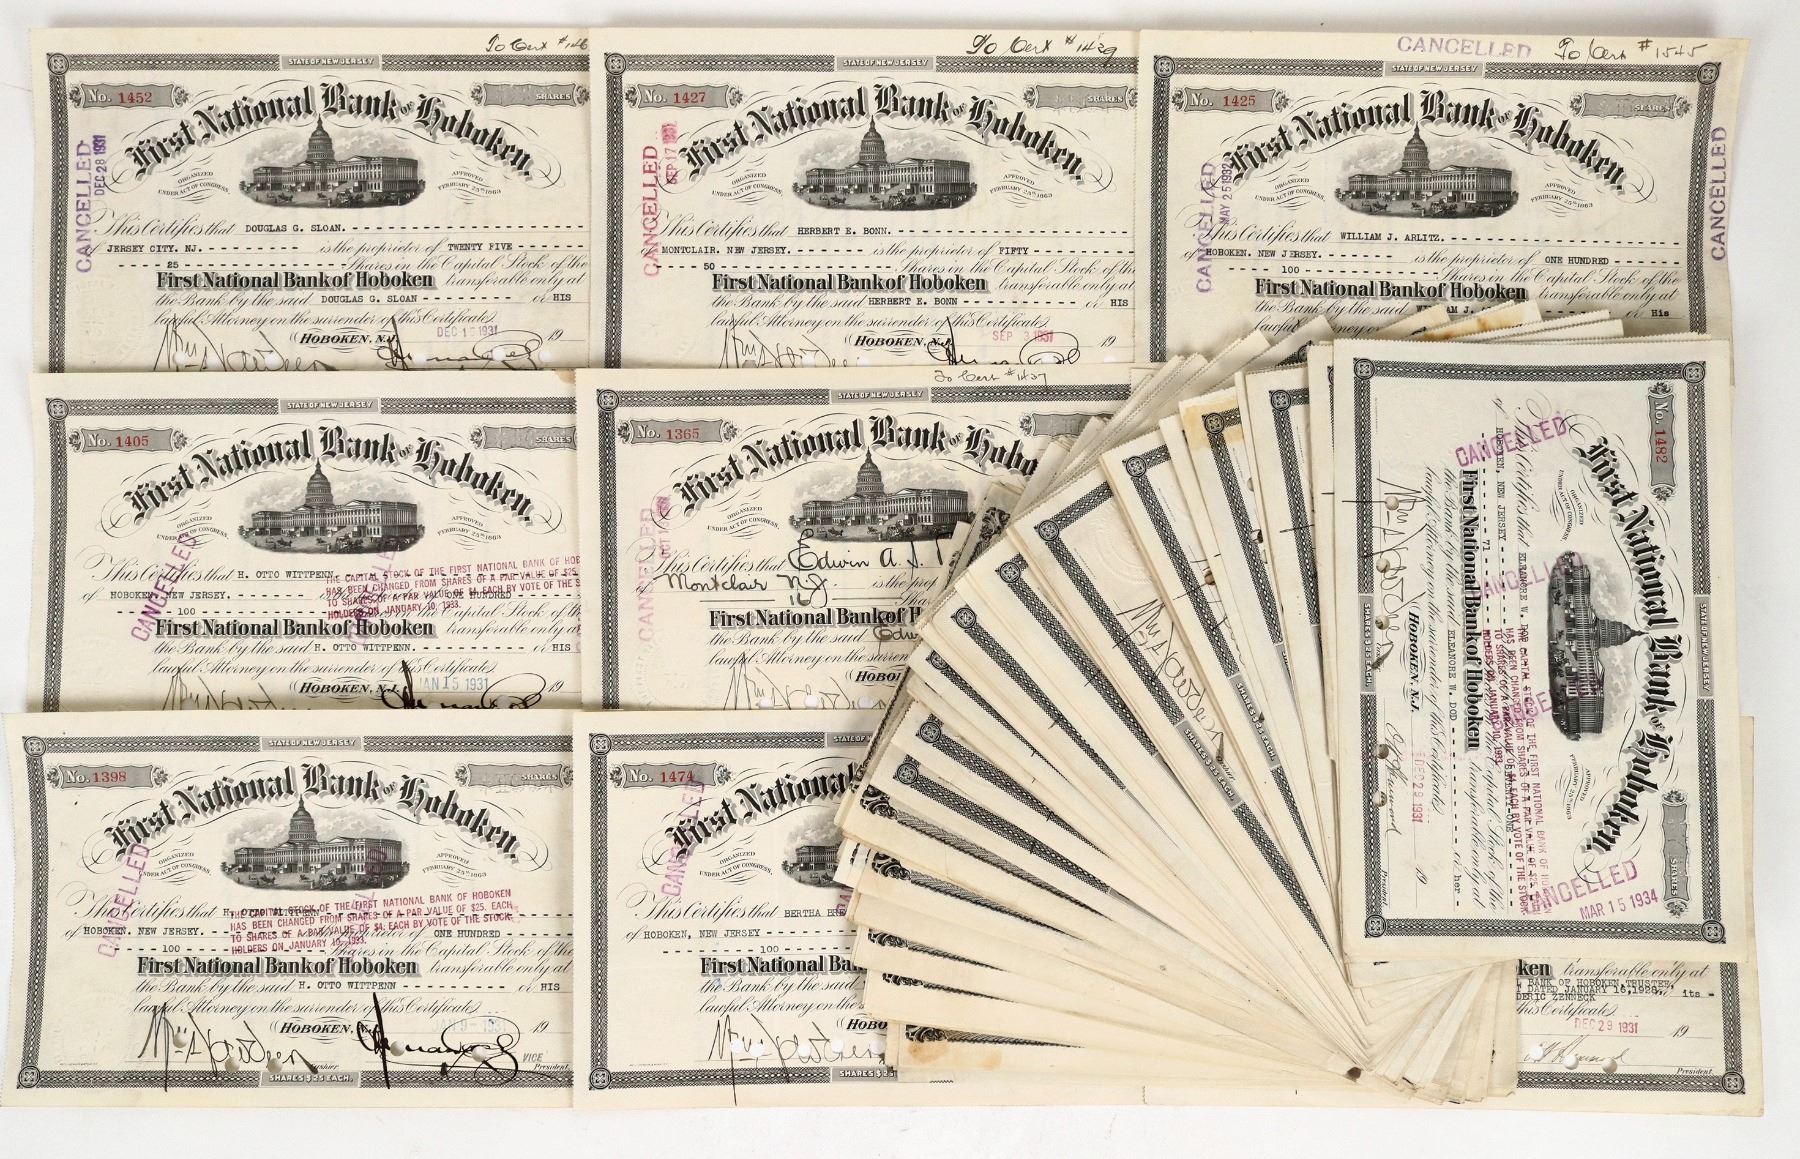 To Cert #146
STATE OF NEW JERSEY
No. 1452
SHARES
First National Bank of Hoboken.
ORGANIZED
UNDER ACT OF CONGRESS.
APPROVED
FEBRUARY 25TH 1863
CANCELLED
DEC 28 1931
This Certifies that DOUGLAS G. SLOAN.
JERSEY CITY. NJ. is the proprietor of TWENTY FIVE
25 Shares in the Capital Stock of the
First National Bank of Hoboken transferable only at
the Bank by the said DOUGLAS G. SLOAN or HIS
lawful Attorney on the surrender of this Certificate.
HOBOKEN, N.J. DEC 15 1931 19
To Cert #1429
STATE OF NEW JERSEY
No. 1427
SHARES
First National Bank of Hoboken.
ORGANIZED
UNDER ACT OF CONGRESS.
APPROVED
FEBRUARY 25TH 1863
CANCELLED
SEP 17 1931
This Certifies that HERBERT E. BONN.
of MONTCLAIR. NEW JERSEY. is the proprietor of FIFTY
50 Shares in the Capital Stock of the
First National Bank of Hoboken transferable only at
the Bank by the said HERBERT E. BONN or HIS
lawful Attorney on the surrender of this Certificate.
HOBOKEN, N.J. SEP 3 1931 19
CANCELLED
To Cert #1545
STATE OF NEW JERSEY
No. 1425
SHARES
First National Bank of Hoboken.
ORGANIZED
UNDER ACT OF CONGRESS.
APPROVED
FEBRUARY 25TH 1863
CANCELLED
MAY 25 1932
CANCELLED
This Certifies that WILLIAM J. ARLITZ.
of HOBOKEN. NEW JERSEY. is the proprietor of ONE HUNDRED
100 Shares in the Capital Stock of the
First National Bank of Hoboken transferable only at
the Bank by the said WILLIAM J. or His
lawful Attorney on
STATE OF NEW JERSEY
No. 1405
SHARES
First National Bank of Hoboken.
ORGANIZED
UNDER ACT OF CONGRESS.
APPROVED
FEBRUARY 25TH 1863
CANCELLED
This Certifies that H. OTTO WITTPENN.
THE CAPITAL STOCK OF THE FIRST NATIONAL BANK OF HOB
HAS BEEN CHANGED FROM SHARES OF A PAR VALUE OF $25.
TO SHARES OF A PAR VALUE OF $4. EACH BY VOTE OF THE S
HOLDERS ON JANUARY 10, 1933.
of HOBOKEN. NEW JERSEY. ONE HUNDRED
100 Capital Stock of the
First National Bank of Hoboken transferable only at
the Bank by the said H. OTTO WITTPENN. or HIS
lawful Attorney on the surrender of this Certificate.
HOBOKEN, N.J. JAN 15 1931 19
To Cert #1427
STATE OF NEW JERSEY
No. 1365
First National Bank of Hobo
ORGANIZED
UNDER ACT OF CONGRESS.
CANCELLED
This Certifies that Edwin A. S.
Montclair N.J. is the prop
16 Shar
First National Bank of Hoboken
the Bank by the said Edw
lawful Attorney on the surren
HOBO
STATE OF NEW JERSEY
No. 1398
SHARES
First National Bank of Hoboken.
ORGANIZED
UNDER ACT OF CONGRESS.
APPROVED
FEBRUARY 25TH 1863
CANCELLED
This Certifies that H. OTTO WITTPENN
THE CAPITAL STOCK OF THE FIRST NATIONAL BANK OF HOBOKEN
HAS BEEN CHANGED FROM SHARES OF A PAR VALUE OF $25. EACH
TO SHARES OF A PAR VALUE OF $4. EACH BY VOTE OF THE STOCK-
HOLDERS ON JANUARY 10, 1933.
of HOBOKEN. NEW JERSEY. proprietor of ONE HUNDRED
100 Shares in the Capital Stock of the
First National Bank of Hoboken transferable only at
the Bank by the said H. OTTO WITTPENN or HIS
lawful Attorney on the surrender of this Certificate.
HOBOKEN, N.J. JAN 9- 1931 19
VICE
Cashier. President.
SHARES $25 EACH.
STATE OF NEW
No. 1474
First National
ORGANIZED
UNDER ACT OF CONGRESS.
CANCELLED
This Certifies that BERTHA BRE
of HOBOKEN, NEW JERSEY
100
First National Ba
the Bank by the said
lawful Attorney on the surr
HOBO
SHARES $25
SHARES $25 EACH.
SHARES $25 EACH.
STATE OF NEW JERSEY
No. 1482
SHARES
First National Bank of Hoboken.
ORGANIZED
UNDER ACT OF CONGRESS.
APPROVED
FEBRUARY 25TH 1863
CANCELLED
CANCELLED
CANCELLED
MAR 15 1934
This Certifies that ELEANORE W. DOD
THE CAPITAL STOCK OF THE FIRST NATIONAL BANK OF HOBOKEN
HAS BEEN CHANGED FROM SHARES OF A PAR VALUE OF $25.
TO SHARES OF A PAR VALUE OF $4. EACH BY VOTE OF THE STOCK
HOLDERS ON JANUARY 10, 1933.
of HOBOKEN, NEW JERSEY SEVENTY-ONE
71 Shares in the Capital Stock of the
First National Bank of Hoboken transferable only at
the Bank by the said ELEANORE W. DOD or her
lawful Attorney on the surrender of this Certificate.
HOBOKEN, N.J. DEC 29 1931 19
President
SHARES $25 EACH.
ken transferable only at
BANK OF HOBOKEN, TRUSTEE
T DATED JANUARY 16, 1928. its
DERIC ZENNECK
this Certificate.
DEC 29 1931 19
President.